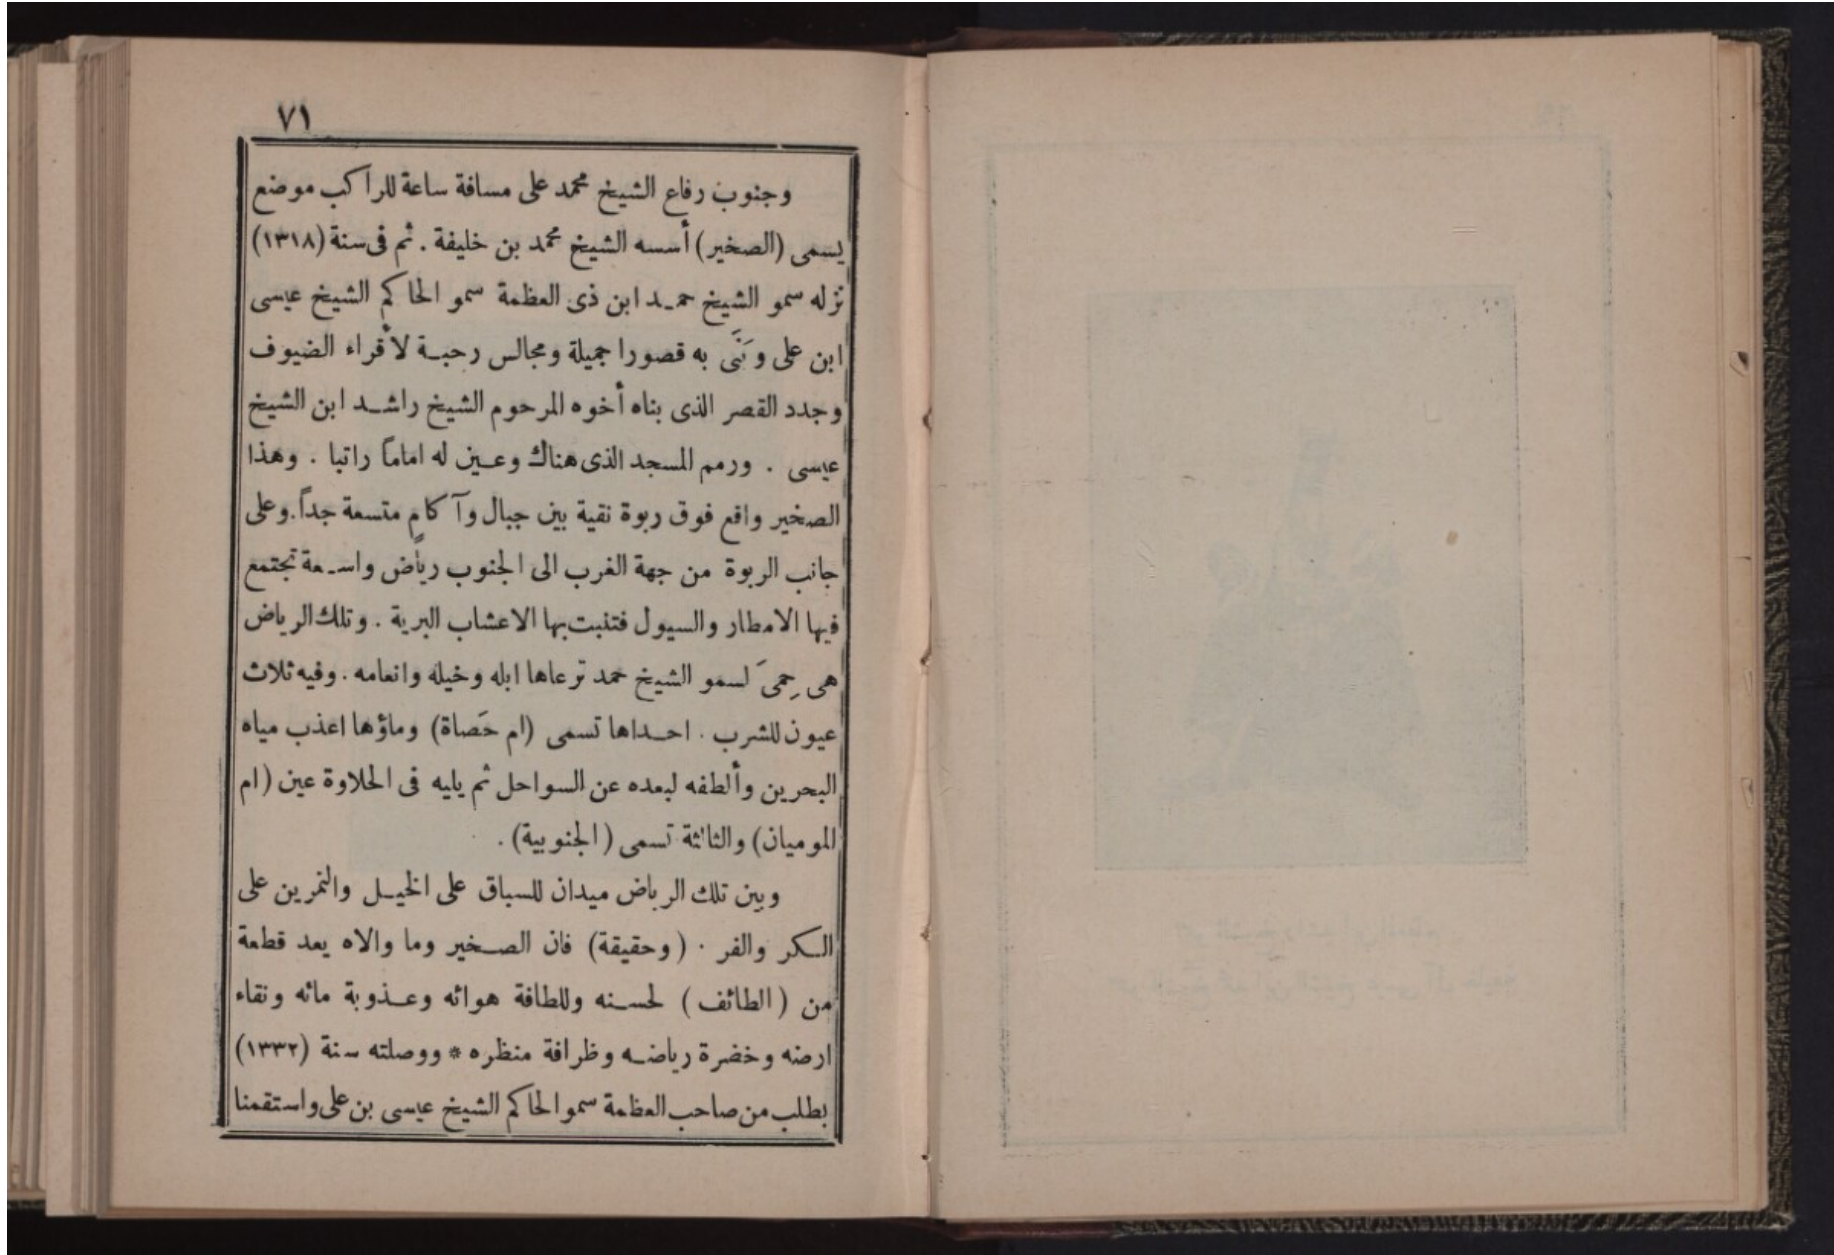 ٧١
وجنوب رفاع الشيخ محمد على مسافة ساعة للراكب موضع
يسمى (الصخير) أسسه الشيخ محمد بن خليفة . ثم فى سنة (١٣١٨)
نزله سمو الشيخ حمـد ابن ذى العظمة سمو الحاكم الشيخ عيسى
ابن على وبَنَى به قصورا جميلة ومجالس رحبـة لأقراء الضيوف
وجدد القصر الذى بناه أخوه المرحوم الشيخ راشـد ابن الشيخ
عيسى . ورمم المسجد الذى هناك وعـين له اماماً راتبا . وهذا
الصخير واقع فوق ربوة نقية بين جبال وآكامٍ متسعة جداً. وعلى
جانب الربوة من جهة الغرب الى الجنوب رياض واسـعة تجتمع
فيها الامطار والسيول فتنبت بها الاعشاب البرية . وتلك الرياض
هى حِمىَ لسمو الشيخ حمد ترعاها ابله وخيله وانعامه . وفيه ثلاث
عيون للشرب . احـداها تسمى (ام حَصاة) وماؤها اعذب مياه
البحرين وألطفه لبعده عن السواحل ثم يليه فى الحلاوة عين (ام
الموميان) والثالثة تسمى (الجنوبية) .
وبين تلك الرياض ميدان للسباق على الخيـل والتمرين على
الـكر والفر . (وحقيقة) فان الصـخير وما والاه يعد قطعة
من (الطائف) لحسـنه وللطافة هوائه وعـذوبة مائه ونقاء
ارضه وخضرة رياضـه وظرافة منظره * ووصلته سنة (١٣٣٢)
بطلب من صاحب العظمة سمو الحاكم الشيخ عيسى بن على واستقمنا